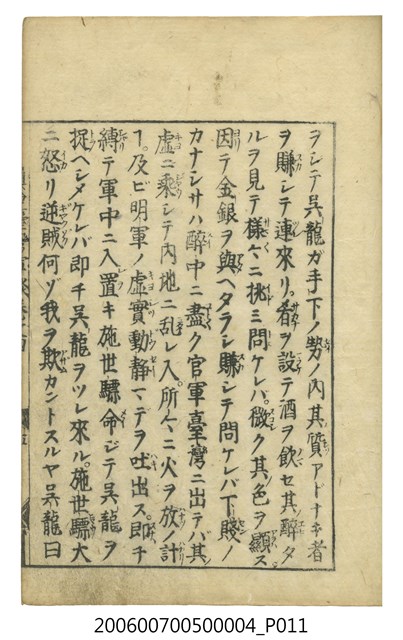 ヲシテ呉龍ガ手下ノ勢ノ内其質アドナキ者
ヲ賺シテ連來リ肴ヲ設テ酒ヲ飲セ其醉タ
ルヲ見テ樣〻ニ挑ミ問ケレバ微ク其色ヲ顯ス
因テ金銀ヲ與ヘタラシ賺シテ問ケレバ下賤ノ
カナシサハ醉中ニ盡ク官軍臺灣ニ出テバ其
虚ニ乘シテ内地ニ乱レ入所〻ニ火ヲ放ノ計
ヿ及ビ明軍ノ虚實動静マデヲ吐出ス即チ
縛テ軍中ニ入置キ施世驃命ジテ呉龍ヲ
捉ヘシメケレバ即チ呉龍ヲツレ來ル施世驃大
ニ怒リ逆賊何ゾ我ヲ欺カントスルヤ呉龍曰
200600700500004_P011